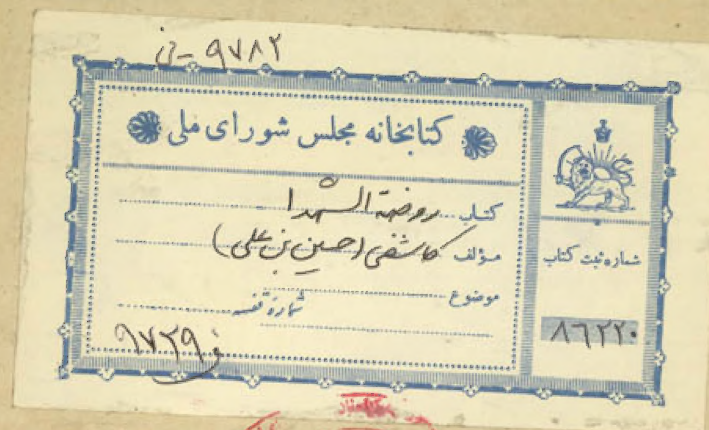 ۹۷۸۲
کتابخانه مجلس شورای ملی
کتاب روضة الشهدا
مؤلف کاشفی (حسین بن علی)
موضوع
شماره قفسه
۹۷۲۹
شماره ثبت کتاب
۸۶۲۲۰